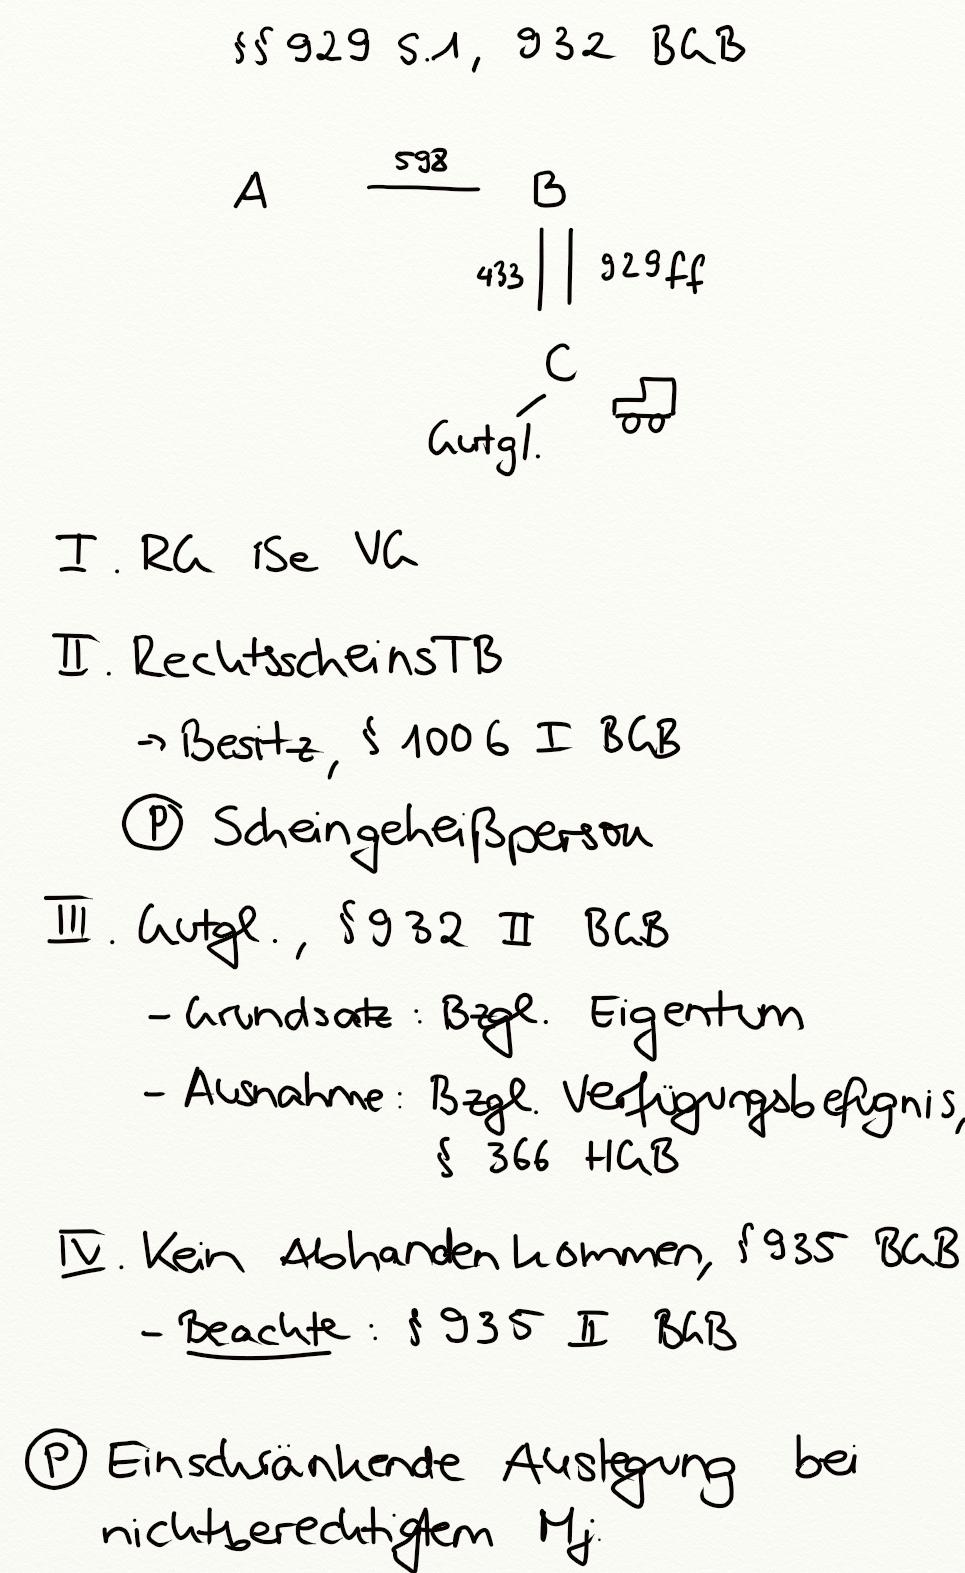 §§ 929 S.1, 932 BGB
598
A B
433 929ff
C
Gutgl.
I. RG iSe VG
II. RechtsscheinsTB
→ Besitz, § 1006 I BGB
(P) Scheingeheißperson
III. Gutgl., § 932 II BGB
- Grundsatz: Bzgl. Eigentum
- Ausnahme: Bzgl. Verfügungsbefugnis,
§ 366 HGB
IV. Kein Abhandenkommen, § 935 BGB
- Beachte: § 935 II BGB
(P) Einschränkende Auslegung bei
nichtberechtigtem Mj.